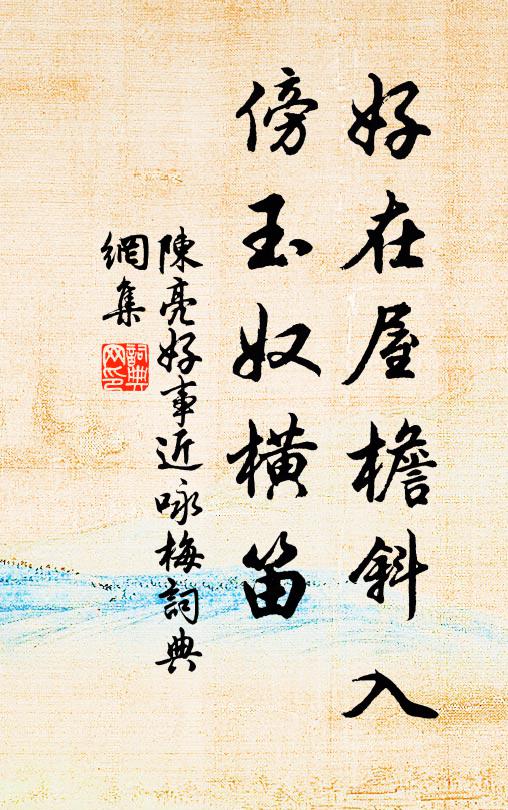 好在屋檐斜入
傍玉奴横笛
陳亮好事近咏梅詞典
網集
詞典
网印